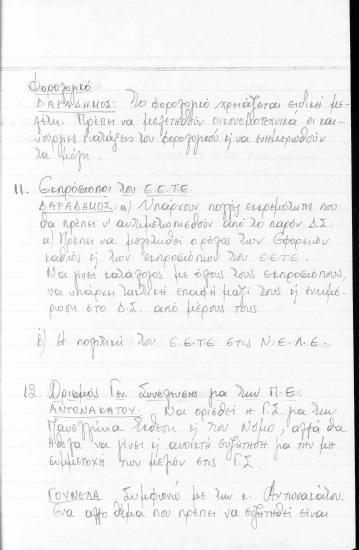 Φορολογικό
ΔΑΡΑΔΗΜΟΣ: Το φορολογικό χρειάζεται ειδική με-
λέτη. Πρέπει να μελετηθούν οικονομοτεχνικά οι και-
νούργιες διατάξεις του φορολογικού ή να ενημερωθούν
τα μέλη.
11. Εκπρόσωποι του Ε.Ε.Τ.Ε.
ΔΑΡΑΔΗΜΟΣ: α) Υπάρχουν πολλές εκκρεμότητες που
θα πρέπει ν' αντιμετωπισθούν από το παρόν Δ.Σ.
α) Πρέπει να μελετηθεί ο ρόλος των Εφορειών
καθώς ή των εκπροσώπων του Ε.Ε.Τ.Ε.
Να γίνει κατάλογος με όλους τους εκπροσώπους,
να υπάρχει τακτική επαφή μαζί τους ή ενημέ-
ρωση στο Δ.Σ. από μέρους τους
β) Η πολιτική του Ε.Ε.Τ.Ε στις Ν.Ε.Λ.Ε.
12. Ορισμός Γεν. Συνέλευσης για την Π.Ε.
ΑΝΤΩΝΑΚΑΤΟΥ: Να ορισθεί η Γ.Σ. για την
Πανελλήνια Έκθεση ή τον Νόμο, αλλά θα
ήθελα να γίνει ή ανοικτή συζήτηση για την μη
συμμετοχή των μελών στις Γ.Σ.
ΓΟΥΝΕΛΑ Συμφωνώ με την κ. Αντωνακάτου.
Ένα άλλο θέμα που πρέπει να συζητηθεί είναι